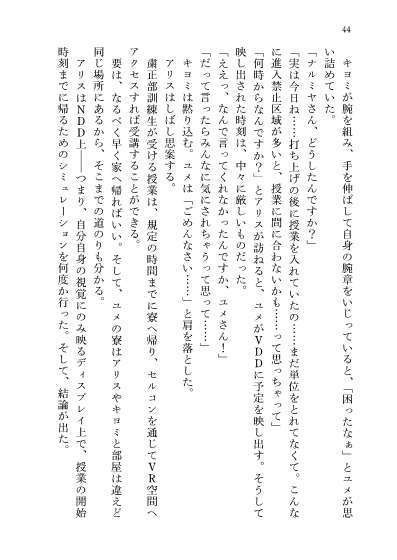 44
　キヨミが腕を組み、手を伸ばして自身の腕章をいじっていると、「困ったなぁ」とユメが思
い詰めていた。
「ナルミヤさん、どうしたんですか？」
「実は今日ね……打ち上げの後に授業を入れていたの……まだ単位をとれてなくて。こんな
に進入禁止区域が多いと、授業に間に合わないかも……って思っちゃって」
「何時からなんですか？」とアリスが訪ねると、ユメがVDDに予定を映し出す。そうして
映し出された時刻は、中々に厳しいものだった。
「ええっ、なんで言ってくれなかったんですか、ユメさん！」
「だって言ったらみんなに気にされちゃうって思って……」
　キヨミは黙り込む。ユメは「ごめんなさい……」と肩を落とした。
　アリスはしばし思案する。
　粛正部訓練生が受ける授業は、規定の時間までに寮へ帰り、セルコンを通じてVR空間へ
アクセスすれば受講することができる。
　要は、なるべく早く家へ帰ればいい。そして、ユメの寮はアリスやキヨミと部屋は違えど
同じ場所にあるから、そこまでの道のりも分かる。
　アリスはNDD上――つまり、自分自身の視覚にのみ映るディスプレイ上で、授業の開始
時刻までに帰るためのシミュレーションを何度か行った。そして、結論が出た。